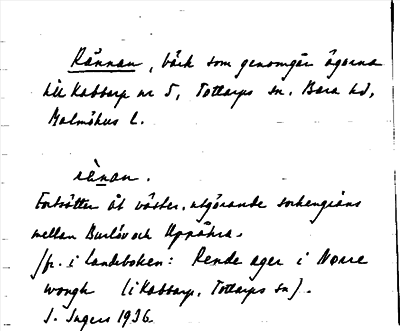 Rännan, bäck som genomgår ägorna
till Kabbarp nr 5, Tottarps sn. Bara hd,
Malmöhus l.
rànan.
Fortsätter åt väster, utgörande sockengräns
mellan Burlöv och Uppåkra.
Jfr. i Landeboken: Rende ager i Norre
wongh (i Kabbarp, Tottarps sn).
I. Ingers 1936.